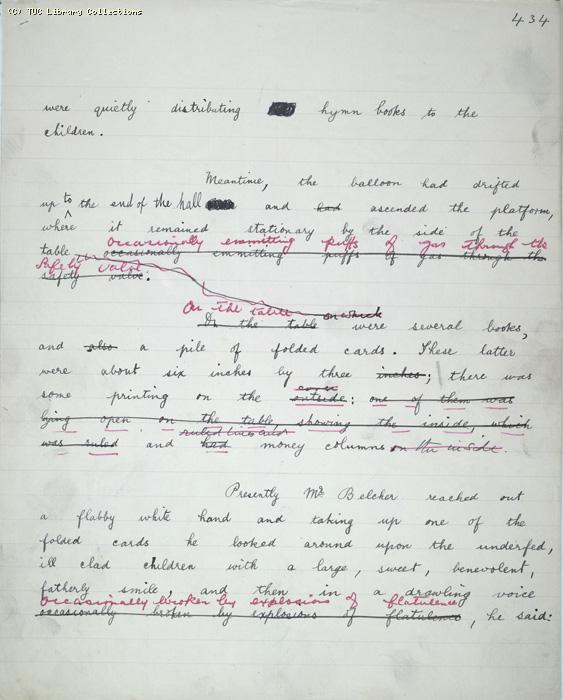 (C) TUC Library Collections
434
were quietly distributing hymn books to the
children.
Meantime, the balloon had drifted
up to the end of the hall and had ascended the platform,
where it remained stationary by the side of the
Occasionally emmitting puffs of gas through the
table occasionally emmitting puffs of gas through the
Safety Valve
safety valve.
On the table on which
On the table were several books,
and also a pile of folded cards. These latter
were about six inches by three inches; there was
cover
some printing on the outside: one of them was
lying open on the table, showing the inside, which
ruled lines and
was ruled and had money columns on the inside.
Presently Mr Belcher reached out
a flabby white hand and taking up one of the
folded cards he looked around upon the underfed,
ill clad children with a large, sweet, benevolent,
fatherly smile, and then in a drawling voice
occasionally broken by explosions of flatulence
occasionally broken by explosions of flatulence, he said: